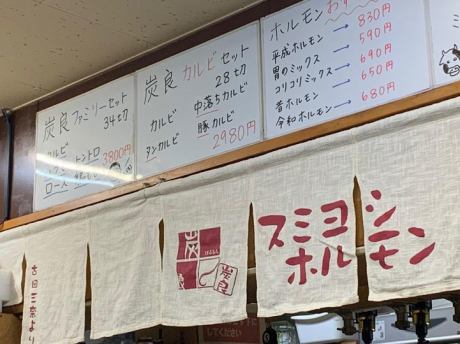 炭良ファミリーセット
34切
カルビ
トントロ
ロース
3800円
炭良カルビセット
28切
カルビ
中落ちカルビ
タンカルビ
豚カルビ
2980円
ホルモンおす
平成ホルモン→830円
胃のミックス→590
コリコリミックス→690円
昔ホルモン→650円
令和ホルモン→680円
古田三奈より
炭良
炭良
スミヨシ
ホルモン
してください